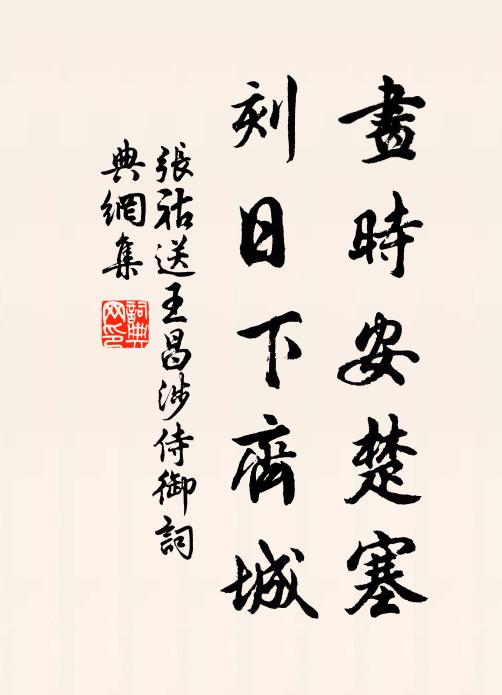 畫時安楚塞
刻日下齊城
張祜送王昌涉侍御詞
典網集
詞典
网印